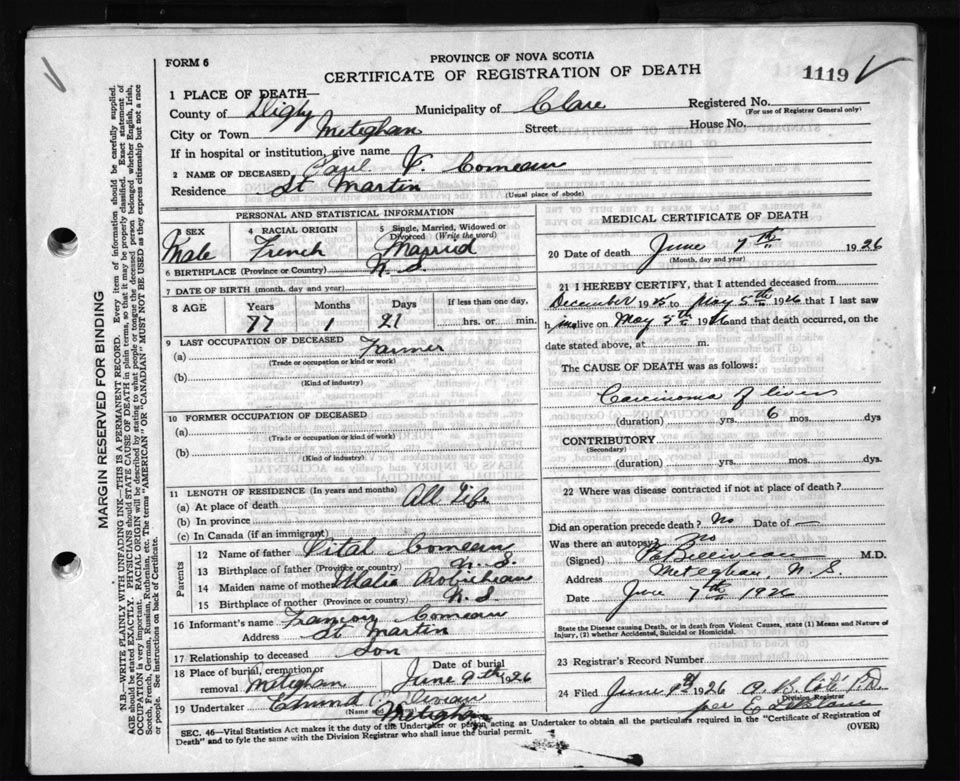 FORM 6
PROVINCE OF NOVA SCOTIA
CERTIFICATE OF REGISTRATION OF DEATH
1119
1 PLACE OF DEATH—
County of Digby Municipality of Clare Registered No.
(For use of Registrar General only)
City or Town Meteghan Street House No.
If in hospital or institution, give name
2 NAME OF DECEASED Paul V. Comeau
Residence St Martin
(Usual place of abode)
PERSONAL AND STATISTICAL INFORMATION
3 SEX 4 RACIAL ORIGIN 5 Single, Married, Widowed or Divorced (Write the word)
Male French Married
6 BIRTHPLACE (Province or Country) N. S.
7 DATE OF BIRTH (month, day and year)
8 AGE Years Months Days If less than one day,
77 1 21 hrs. or min.
9 LAST OCCUPATION OF DECEASED
(a) Farmer
(Trade or occupation or kind or work)
(b)
(Kind of industry)
10 FORMER OCCUPATION OF DECEASED
(a)
(Trade or occupation or kind of work)
(b)
(Kind of industry)
11 LENGTH OF RESIDENCE (In years and months)
(a) At place of death All Life
(b) In province
(c) In Canada (if an immigrant)
Parents
12 Name of father Vital Comeau
13 Birthplace of father (Province or country) N. S.
14 Maiden name of mother Robicheau
15 Birthplace of mother (Province or country) N. S.
16 Informant's name Comeau
Address St Martin
17 Relationship to deceased Son
18 Place of burial, cremation or removal Meteghan Date of burial June 9th 1926
19 Undertaker
(Name and
Meteghan
MEDICAL CERTIFICATE OF DEATH
20 Date of death June 7th 1926
(Month, day and year)
21 I HEREBY CERTIFY, that I attended deceased from
December 1925 to May 5th 1926 that I last saw
h im alive on May 5th 1926 and that death occurred, on the
date stated above, at m.
The CAUSE OF DEATH was as follows:
Carcinoma of liver
(duration) yrs. 6 mos. dys
CONTRIBUTORY
(Secondary)
(duration) yrs. mos. dys
22 Where was disease contracted if not at place of death?
Did an operation precede death? No Date of —
Was there an autopsy? No
(Signed) Belliveau M.D.
Address Meteghan, N. S
Date June 7th 1926
State the Disease causing Death, or in death from Violent Causes, state (1) Means and Nature of Injury, (2) whether Accidental, Suicidal or Homicidal.
23 Registrar's Record Number
24 Filed June 1926 A. B. Côté P.D.
Division Registrar
per
SEC. 46—Vital Statistics Act makes it the duty of the Undertaker or person acting as Undertaker to obtain all the particulars required in the "Certificate of Registration of
Death" and to fyle the same with the Division Registrar who shall issue the burial permit. (OVER)
MARGIN RESERVED FOR BINDING
N.B.—WRITE PLAINLY WITH UNFADING INK—THIS IS A PERMANENT RECORD. Every item of information should be carefully supplied.
AGE should be stated EXACTLY. PHYSICIANS should STATE CAUSE OF DEATH in plain terms, so that it may be properly classified. Exact statement of
OCCUPATION is very important. RACIAL ORIGIN will be described by stating to what people or tongue the deceased person belonged whether English, Irish,
Scotch, French, German, Russian, Ruthenian, etc. The terms "AMERICAN" OR "CANADIAN" MUST NOT BE USED as they express citizenship but not a race
or people. See instructions on back of Certificate.